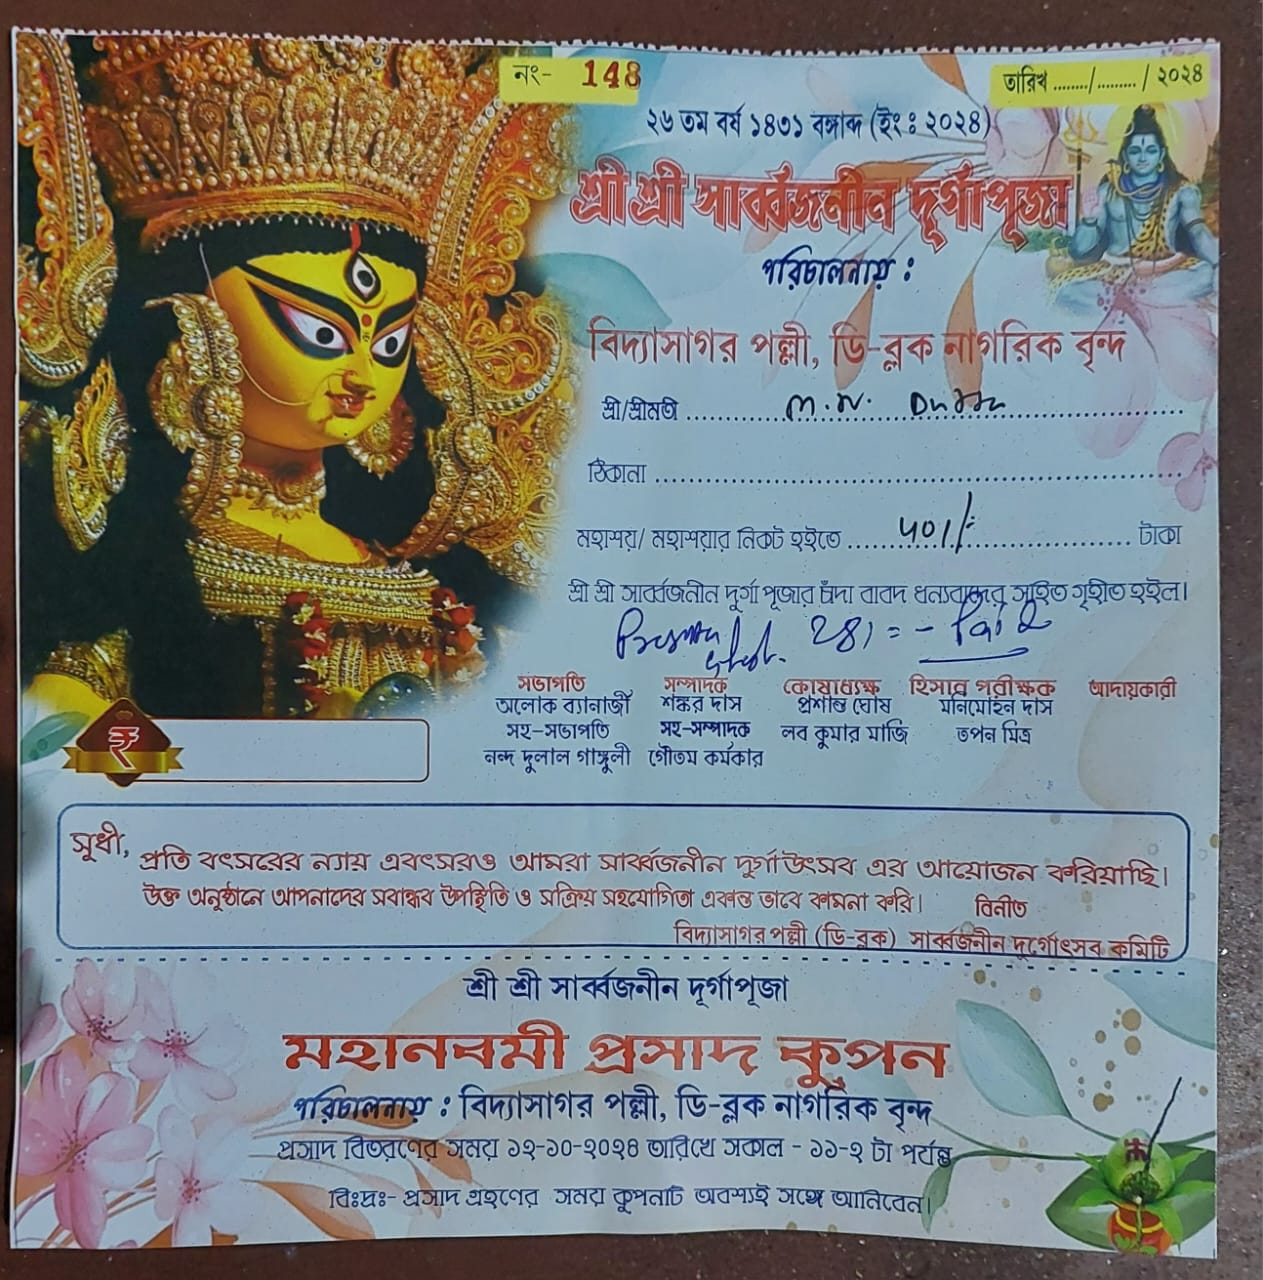 নং- 148
তারিখ ......../......... / ২০২৪
২৬ তম বর্ষ ১৪৩১ বঙ্গাব্দ (ইং : ২০২৪)
শ্রী শ্রী সার্ব্বজনীন দূর্গাপূজা
পরিচালনায় :
বিদ্যাসাগর পল্লী, ডি-ব্লক নাগরিক বৃন্দ
শ্রী/শ্রীমতী M. N. Dutta
ঠিকানা
মহাশয়/ মহাশয়ার নিকট হইতে ৫০১/- টাকা
শ্রী শ্রী সার্ব্বজনীন দুর্গা পূজার চাঁদা বাবদ ধন্যবাদের সহিত গৃহীত হইল।
281 = - Paid
সভাপতি সম্পাদক কোষাধ্যক্ষ হিসাব পরীক্ষক আদায়কারী
অলোক ব্যানার্জী শঙ্কর দাস প্রশান্ত ঘোষ মনিমোহন দাস
সহ-সভাপতি সহ-সম্পাদক লব কুমার মাজি তপন মিত্র
নন্দ দুলাল গাঙ্গুলী গৌতম কর্মকার
₹
সুধী,
প্রতি বৎসরের ন্যায় এবৎসরও আমরা সার্ব্বজনীন দুর্গাউৎসব এর আয়োজন করিয়াছি।
উক্ত অনুষ্ঠানে আপনাদের সবান্ধব উপস্থিতি ও সক্রিয় সহযোগিতা একান্ত ভাবে কামনা করি। বিনীত
বিদ্যাসাগর পল্লী (ডি-ব্লক) সার্ব্বজনীন দুর্গোৎসব কমিটি
শ্রী শ্রী সার্ব্বজনীন দূর্গাপূজা
মহানবমী প্রসাদ কুপন
পরিচালনায় : বিদ্যাসাগর পল্লী, ডি-ব্লক নাগরিক বৃন্দ
প্রসাদ বিতরণের সময় ১২-১০-২০২৪ তারিখে সকাল - ১১-২ টা পর্যন্ত
বিঃদ্রঃ- প্রসাদ গ্রহণের সময় কুপনটি অবশ্যই সঙ্গে আনিবেন।